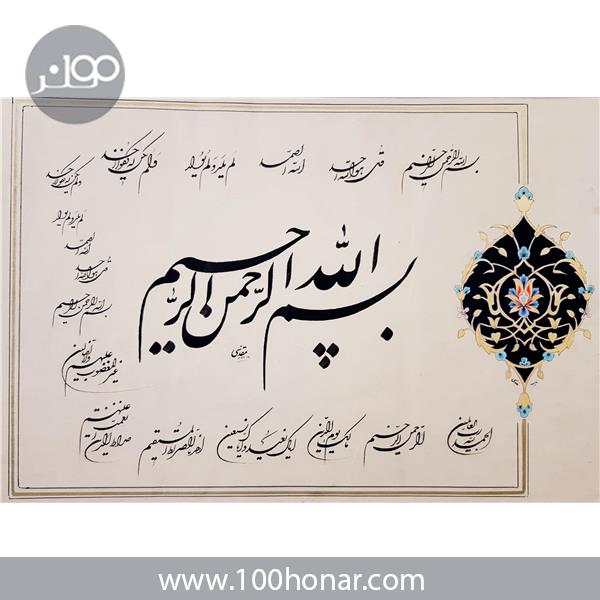 بسم الله الرحمن الرحیم
قل هو الله احد
الله الصمد
لم یلد و لم یولد
ولم یکن له کفوا احد
ولم یکن له کفوا احد
لم یلد و لم یولد
الله الصمد
قل هو الله احد
بسم الله الرحمن الرحیم
بسم الله الرحمن الرحیم
الحمد لله رب العالمین
الرحمن الرحیم
مالک یوم الدین
ایاک نعبد و ایاک نستعین
اهدنا الصراط المستقیم
صراط الذین انعمت علیهم
غیر المغضوب علیهم ولا الضالین
www.100honar.com